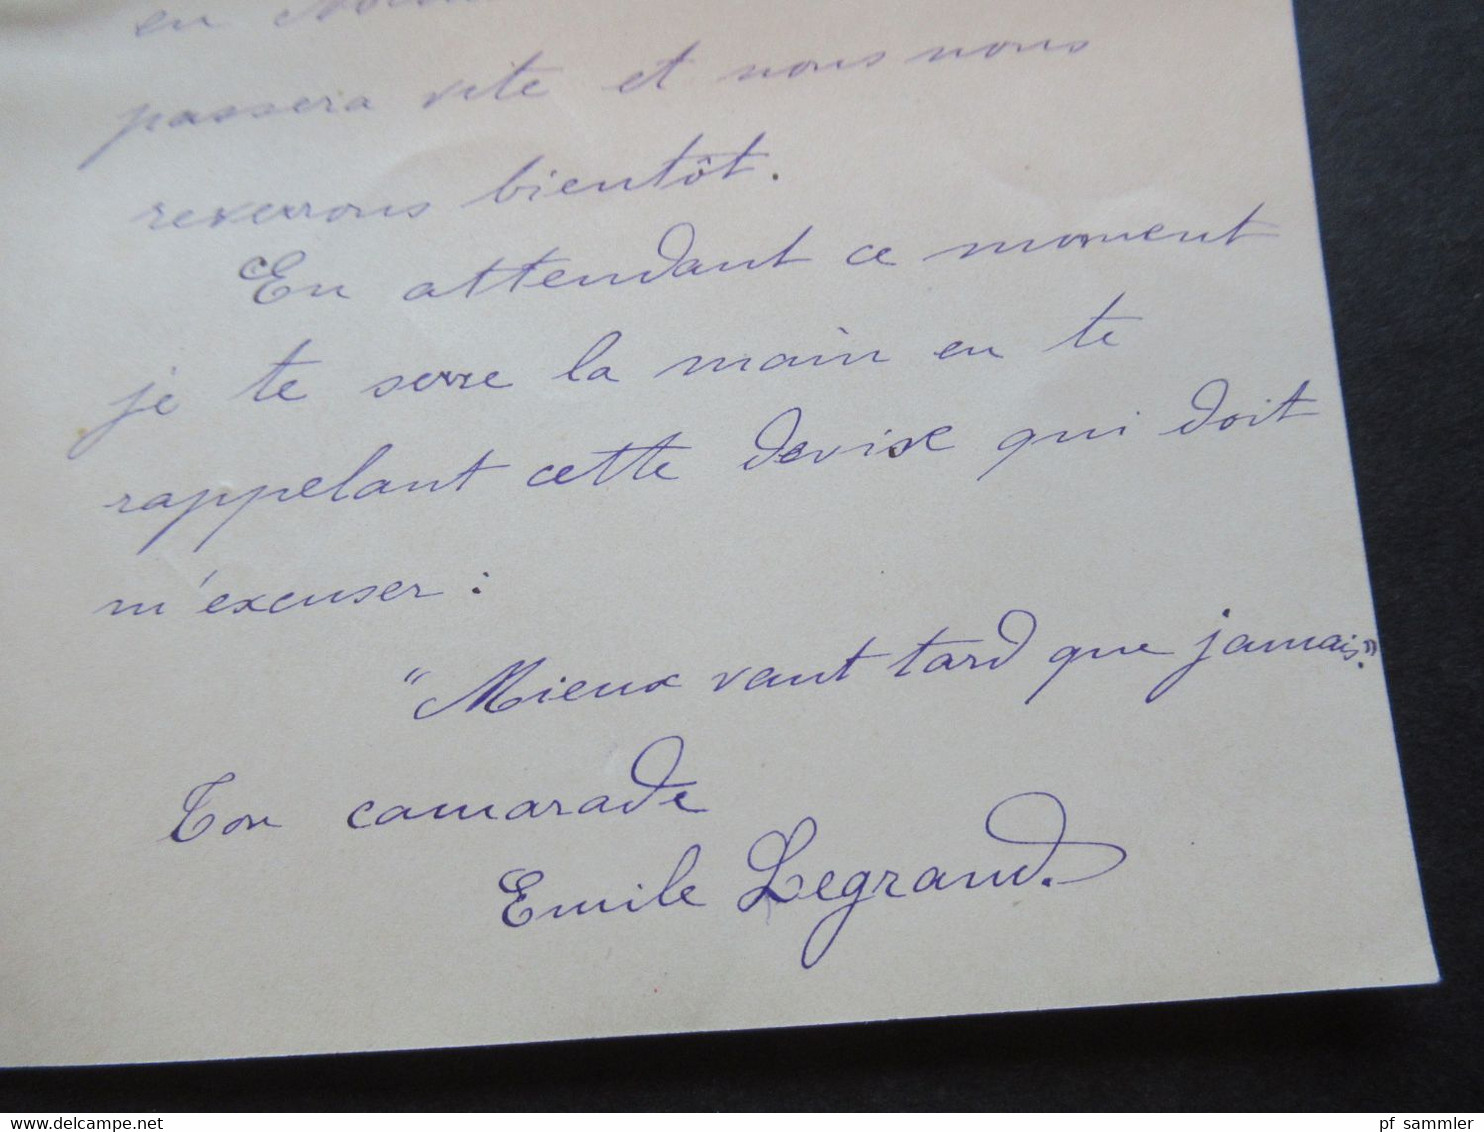 en
passera vite et nous nous
reverrons bientôt.
En attendant ce moment
je te serre la main en te
rappelant cette devise qui doit
m'excuser :
"Mieux vaut tard que jamais."
Ton camarade
Emile Legrand.
pf_sammler